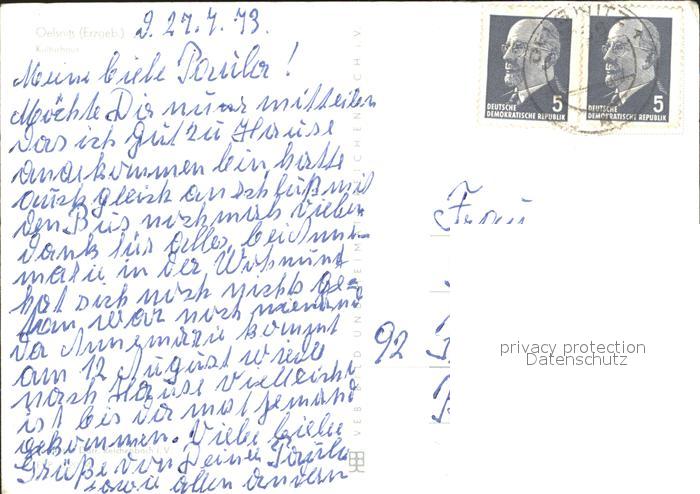 Oelsnitz (Erzgeb.)
Kulturhaus
d. 27.7.73.
Meine liebe Paula!
Möchte Dir nur mitteilen
das ich gut zu Hause
angekommen bin, hatte
auch gleich anschluß mit
den Bus nochmals vielen
dank für alles, bei Anne-
marie in der Wohnung
hat sich noch nichts ge-
tan war noch niemand
da Annemarie kommt
am 12 August wieder
nach Hause vielleicht
ist bis da mal jemand
gekommen. Viele liebe
Grüße von Deiner Paula
sowie allen andern
VEB BILD UND HEIMAT REICHENBACH i. V.
DEUTSCHE
DEMOKRATISCHE REPUBLIK
5
DEUTSCHE
DEMOKRATISCHE REPUBLIK
5
Frau
92
privacy protection
Datenschutz